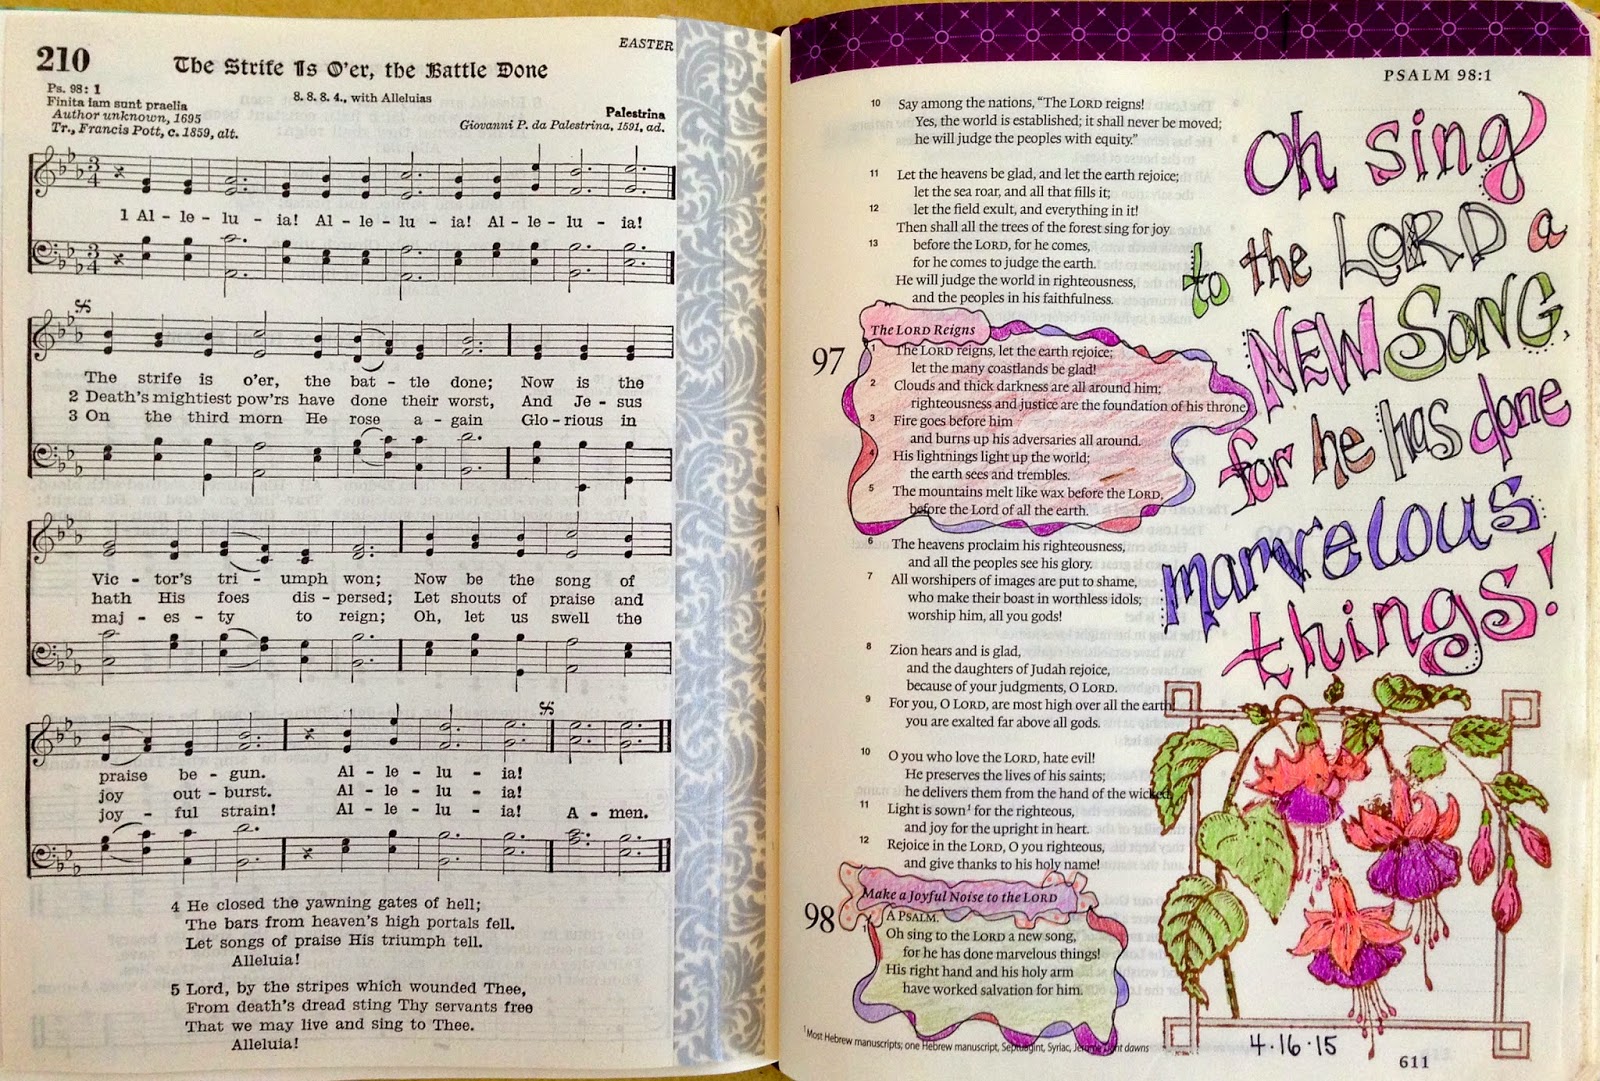 210
EASTER
The Strife Is O'er, the Battle Done
Ps. 98: 1
Finita iam sunt praelia
Author unknown, 1695
Tr., Francis Pott, c. 1859, alt.
8. 8. 8. 4., with Alleluias
Palestrina
Giovanni P. da Palestrina, 1591, ad.
1 Al - le - lu - ia! Al - le - lu - ia! Al - le - lu - ia!
The strife is o'er, the bat - tle done; Now is the
2 Death's mightiest pow'rs have done their worst, And Je - sus
3 On the third morn He rose a - gain Glo - rious in
Vic - tor's tri - umph won; Now be the song of
hath His foes dis - persed; Let shouts of praise and
maj - es - ty to reign; Oh, let us swell the
praise be - gun. Al - le - lu - ia!
joy out - burst. Al - le - lu - ia!
joy - ful strain! Al - le - lu - ia! A - men.
4 He closed the yawning gates of hell;
The bars from heaven's high portals fell.
Let songs of praise His triumph tell.
Alleluia!
5 Lord, by the stripes which wounded Thee,
From death's dread sting Thy servants free
That we may live and sing to Thee.
Alleluia!
PSALM 98:1
10 Say among the nations, "The LORD reigns!
Yes, the world is established; it shall never be moved;
he will judge the peoples with equity."
11 Let the heavens be glad, and let the earth rejoice;
let the sea roar, and all that fills it;
12 let the field exult, and everything in it!
Then shall all the trees of the forest sing for joy
13 before the LORD, for he comes,
for he comes to judge the earth.
He will judge the world in righteousness,
and the peoples in his faithfulness.
The LORD Reigns
97 1 The LORD reigns, let the earth rejoice;
let the many coastlands be glad!
2 Clouds and thick darkness are all around him;
righteousness and justice are the foundation of his throne
3 Fire goes before him
and burns up his adversaries all around.
4 His lightnings light up the world;
the earth sees and trembles.
5 The mountains melt like wax before the LORD,
before the Lord of all the earth.
6 The heavens proclaim his righteousness,
and all the peoples see his glory.
7 All worshipers of images are put to shame,
who make their boast in worthless idols;
worship him, all you gods!
8 Zion hears and is glad,
and the daughters of Judah rejoice,
because of your judgments, O LORD.
9 For you, O LORD, are most high over all the earth
you are exalted far above all gods.
10 O you who love the LORD, hate evil!
He preserves the lives of his saints;
he delivers them from the hand of the wicked
11 Light is sown1 for the righteous,
and joy for the upright in heart.
12 Rejoice in the LORD, O you righteous,
and give thanks to his holy name!
Make a Joyful Noise to the LORD
98 A PSALM.
1 Oh sing to the LORD a new song,
for he has done marvelous things!
His right hand and his holy arm
have worked salvation for him.
1 Most Hebrew manuscripts; one Hebrew manuscript, Septuagint, Syriac, dawns
611
Oh sing
to the LORD a
NEW SONG,
for he has done
marvelous
things!
4·16·15